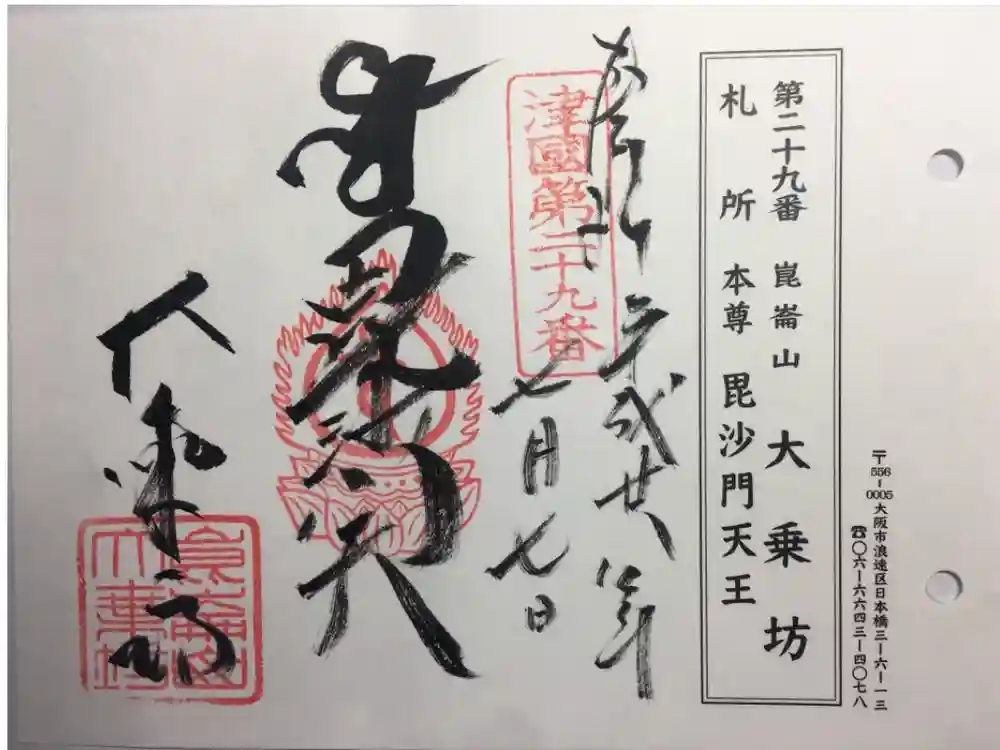 〒556-0005 大阪市浪速区日本橋三-六-一三
☎〇六-六六四三-四〇七八
第二十九番 崑崙山 大乗坊
札所 本尊 毘沙門天王
奉拝 平成廿八年
七月七日
津國第二十九番
毘沙門天
大乗坊